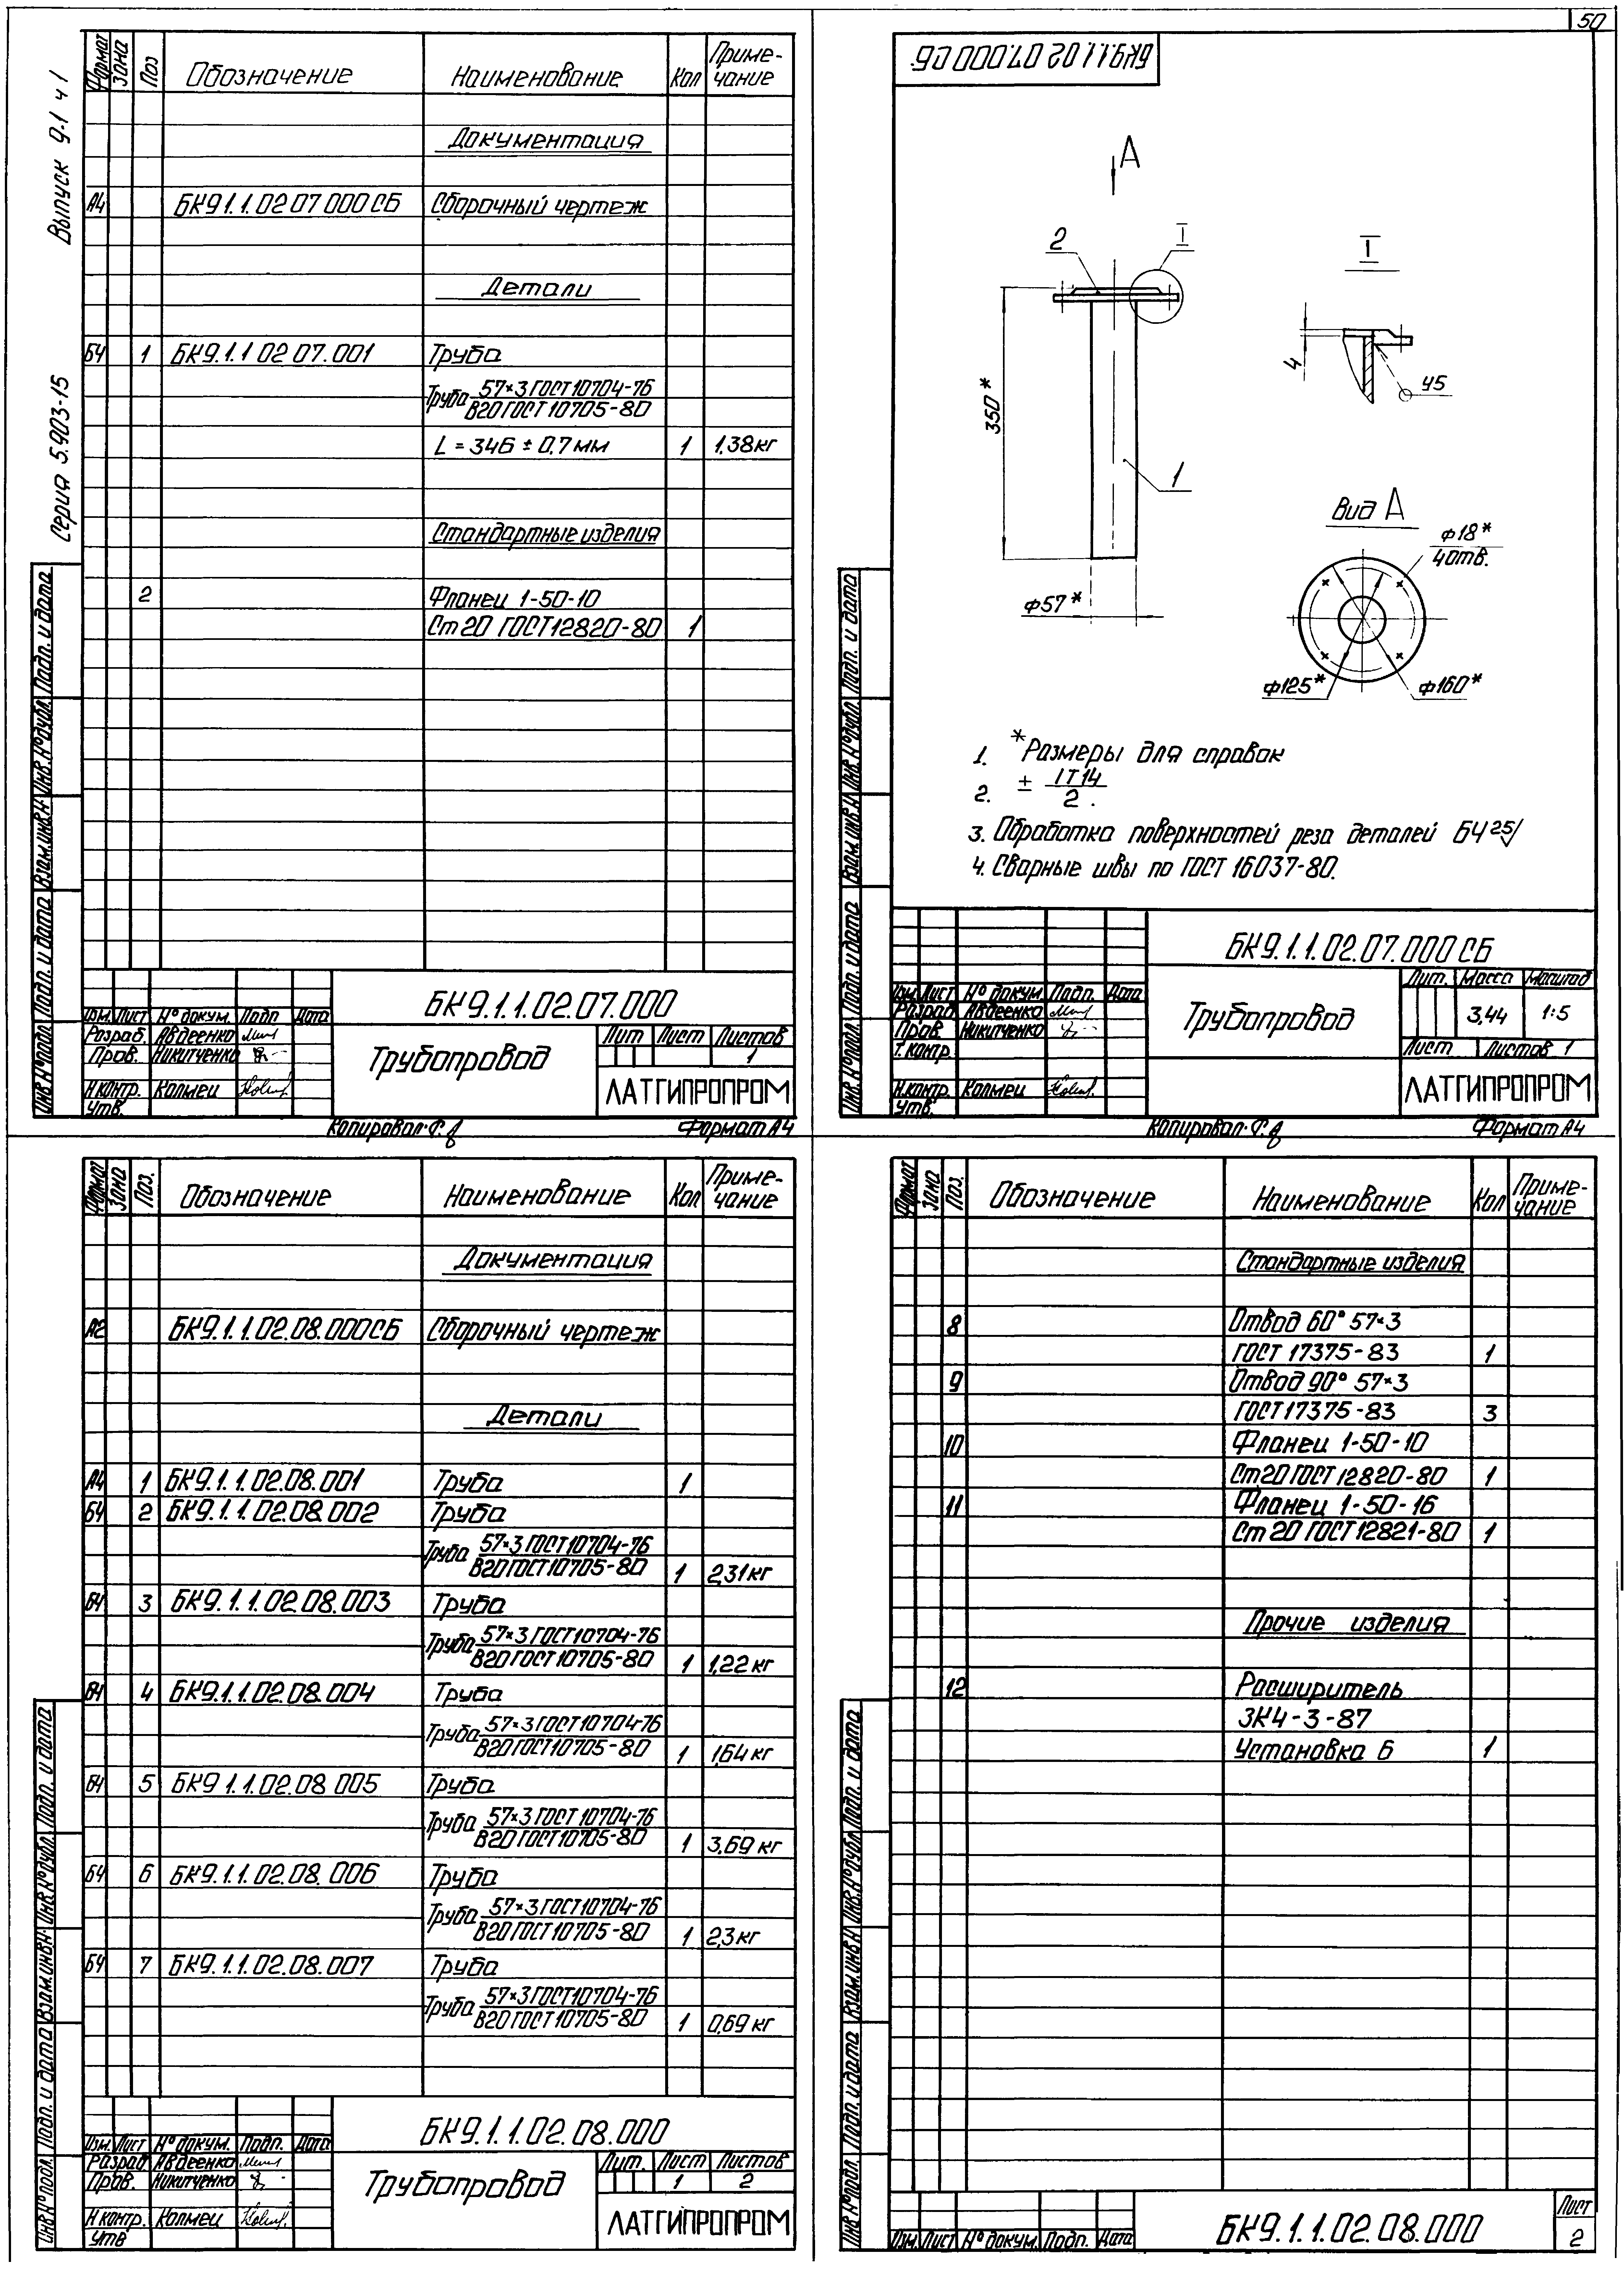 50
Выпуск 9.1 ч 1
Серия 5.903-15
Формат Зона Поз Обозначение Наименование Кол Примечание
Документация
А4 БК9.1.1.02 07 000 СБ Сборочный чертеж
Детали
БЧ 1 БК9.1.1 02 07.001 Труба
Труба 57×3 ГОСТ 10704-76
В20 ГОСТ 10705-80
L = 346 ± 0,7 мм 1 1,38 кг
Стандартные изделия
2 Фланец 1-50-10
Ст 20 ГОСТ 12820-80 1
Инв.№подл. Подп. и дата Взам.инв.№ Инв.№дубл. Подп. и дата
БК9.1.1.02.07.000
Изм. Лист № докум. Подп Дата
Разраб. Авдеенко
Пров. Никитченко
Н.контр. Колмец
Утв.
Трубопровод
Лит Лист Листов
1
ЛАТГИПРОПРОМ
Копировал Формат А4
БК9.1.1 02 07.000 СБ
А
2
I
I
350*
4
У5
1
Вид А
ф18*
4 отв.
ф57*
ф125*
ф160*
1. *Размеры для справок
2. ± IT14
2.
3. Обработка поверхностей реза деталей БЧ 25
4. Сварные швы по ГОСТ 16037-80.
Инв.№подл. Подп. и дата Взам.инв.№ Инв.№дубл. Подп. и дата
БК9.1.1.02.07.000 СБ
Изм. Лист № докум. Подп. Дата
Разраб Авдеенко
Пров. Никитченко
Т. контр.
Н.контр. Колмец
Утв.
Трубопровод
Лит. Масса Масштаб
3,44 1:5
Лист Листов 1
ЛАТГИПРОПРОМ
Копировал Формат А4
Формат Зона Поз. Обозначение Наименование Кол Примечание
Документация
А2 БК9.1.1.02.08.000СБ Сборочный чертеж
Детали
А4 1 БК9.1.1.02.08.001 Труба 1
БЧ 2 БК9.1.1.02.08.002 Труба
Труба 57×3 ГОСТ 10704-76
В20 ГОСТ 10705-80 1 2,31 кг
БЧ 3 БК9.1.1.02.08.003 Труба
Труба 57×3 ГОСТ 10704-76
В20 ГОСТ 10705-80 1 1,22 кг
БЧ 4 БК9.1.1.02.08.004 Труба
Труба 57×3 ГОСТ 10704-76
В20 ГОСТ 10705-80 1 1,64 кг
БЧ 5 БК9.1.1.02.08 005 Труба
Труба 57×3 ГОСТ 10704-76
В20 ГОСТ 10705-80 1 3,69 кг
БЧ 6 БК9.1.1.02.08.006 Труба
Труба 57×3 ГОСТ 10704-76
В20 ГОСТ 10705-80 1 2,3 кг
БЧ 7 БК9.1.1.02.08.007 Труба
Труба 57×3 ГОСТ 10704-76
В20 ГОСТ 10705-80 1 0,69 кг
Инв.№подл. Подп. и дата Взам.инв.№ Инв.№дубл. Подп. и дата
БК9.1.1.02.08.000
Изм. Лист № докум. Подп. Дата
Разраб Авдеенко
Пров. Никитченко
Н контр. Колмец
Утв
Трубопровод
Лит. Лист Листов
1 2
ЛАТГИПРОПРОМ
Формат Зона Поз. Обозначение Наименование Кол Примечание
Стандартные изделия
8 Отвод 60° 57×3
ГОСТ 17375-83 1
9 Отвод 90° 57×3
ГОСТ 17375-83 3
10 Фланец 1-50-10
Ст 20 ГОСТ 12820-80 1
11 Фланец 1-50-16
Ст 20 ГОСТ 12821-80 1
Прочие изделия
12 Расширитель
ЗК4-3-87
Установка Б 1
Инв.№подл. Подп. и дата Взам.инв.№ Инв.№дубл. Подп. и дата
Изм. Лист № докум. Подп. Дата
БК9.1.1.02.08.000
Лист
2